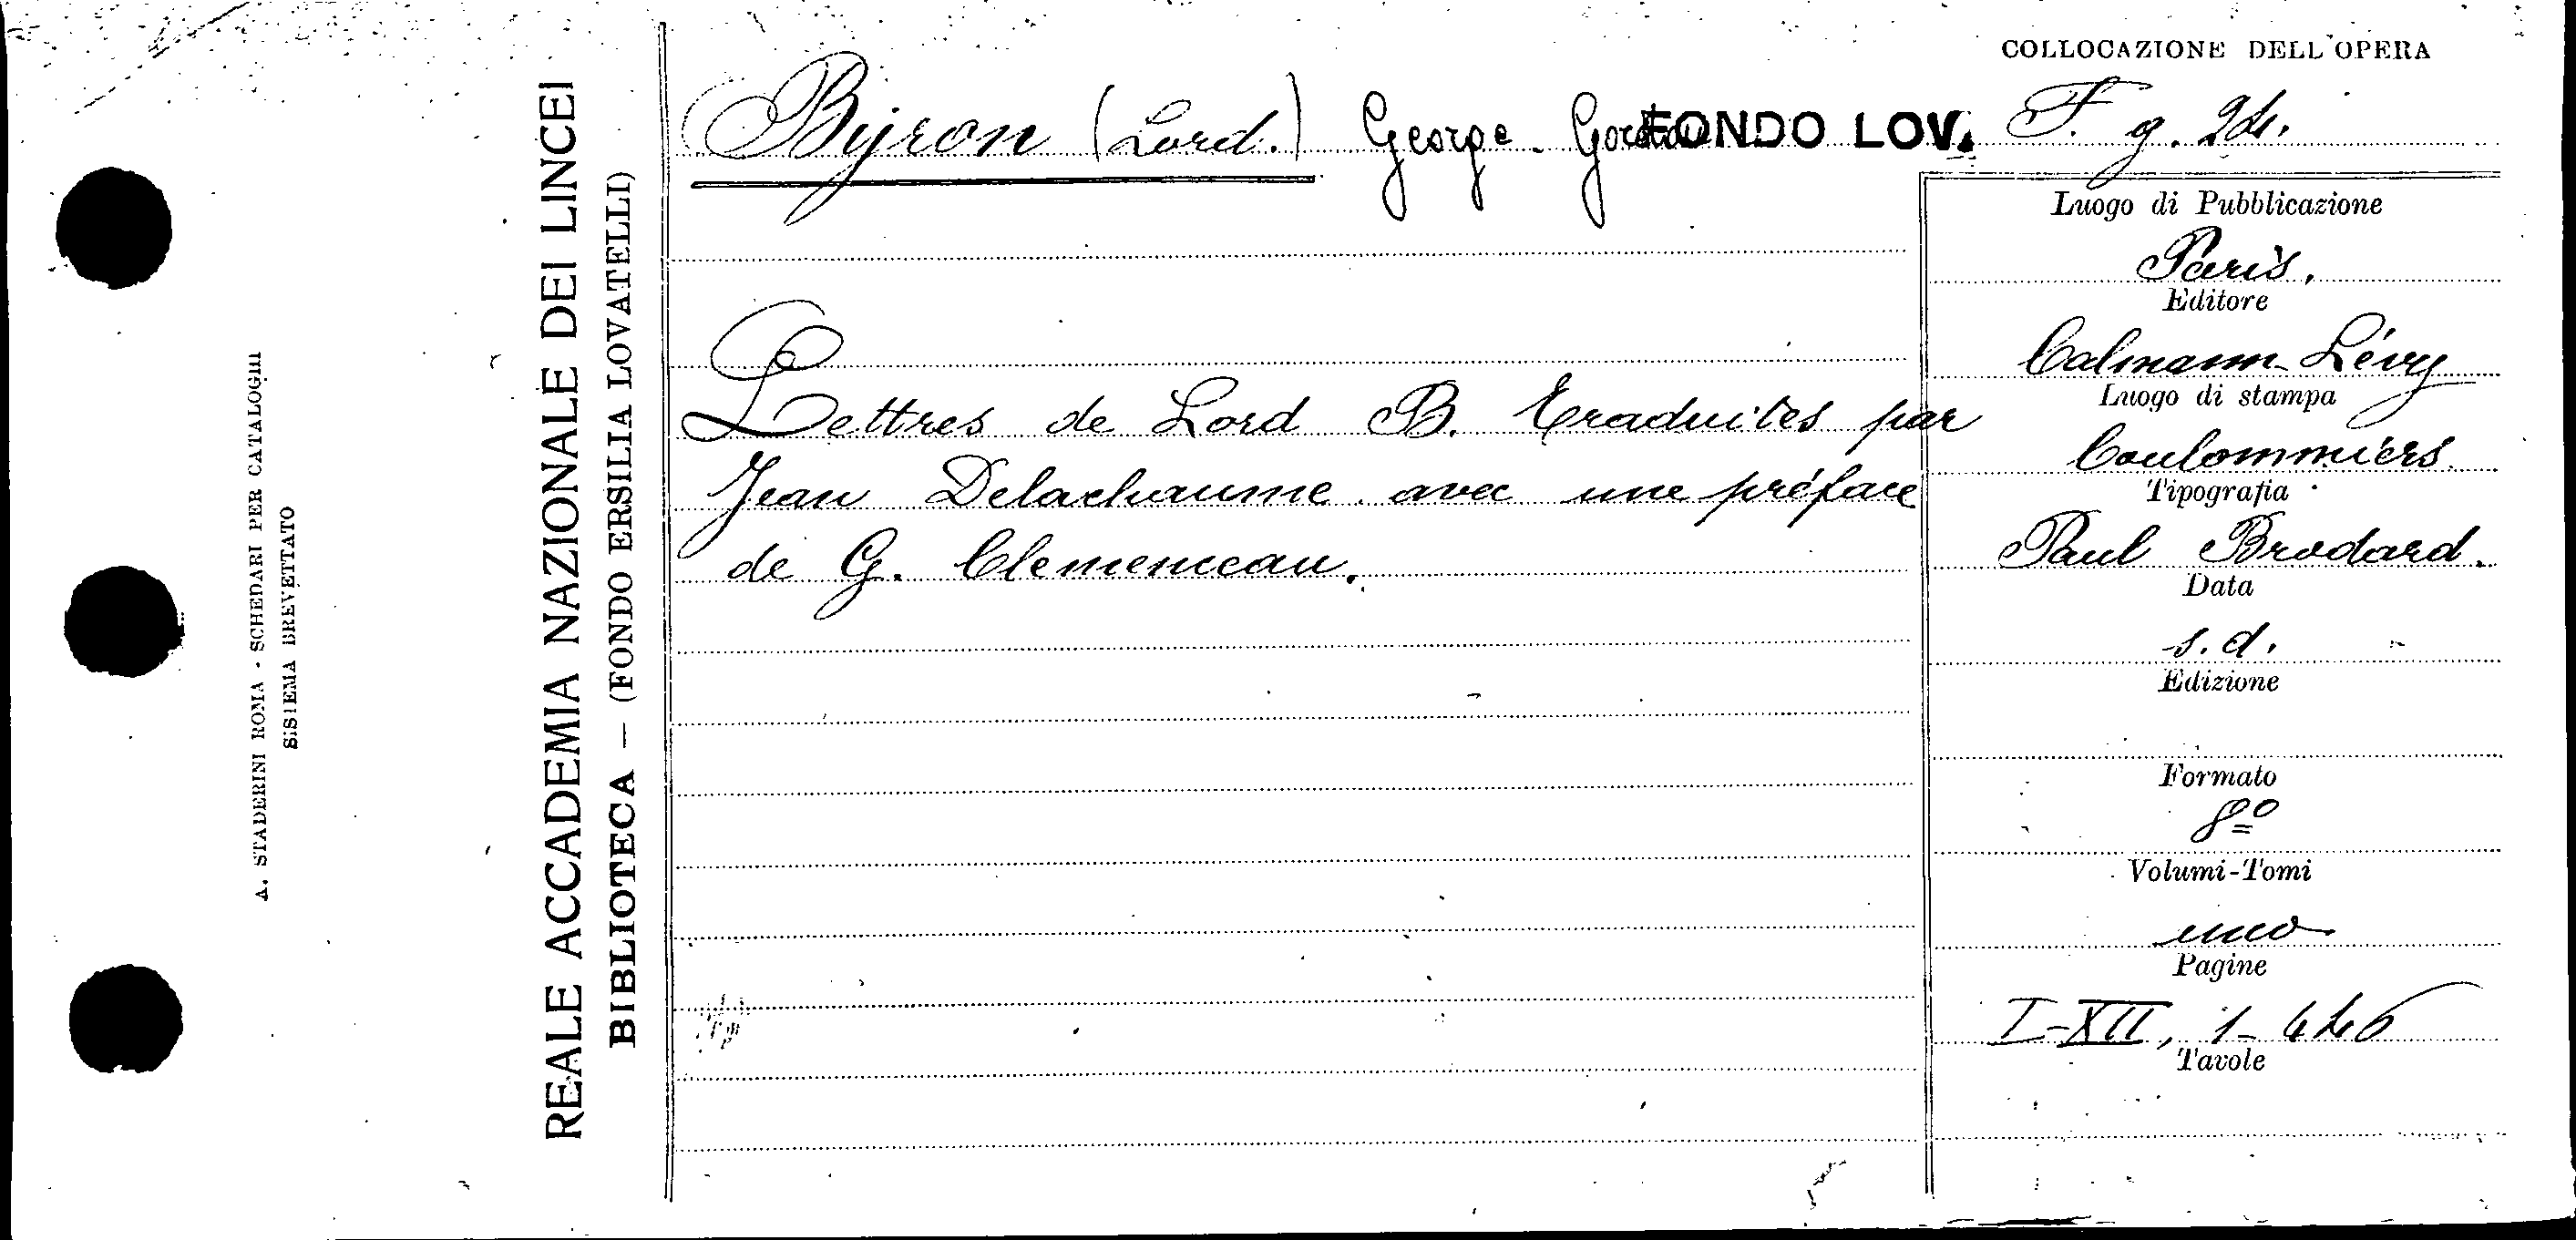 COLLOCAZIONE DELL'OPERA
Byron (Lord.) George Gordon FONDO LOV. F. g. 24.
Luogo di Pubblicazione
Paris.
Editore
Calmann-Lévy
Luogo di stampa
Coulommiers
Tipografia
Paul Brodard.
Data
s.d.
Edizione
Formato
8º
Volumi-Tomi
uno
Pagine
I-XII, 1-446
Tavole
Lettres de Lord B. traduites par
Jean Delachaume avec une préface
de G. Clemenceau.
REALE ACCADEMIA NAZIONALE DEI LINCEI
BIBLIOTECA — (FONDO ERSILIA LOVATELLI)
A. STADERINI ROMA - SCHEDARI PER CATALOGHI
SISTEMA BREVETTATO